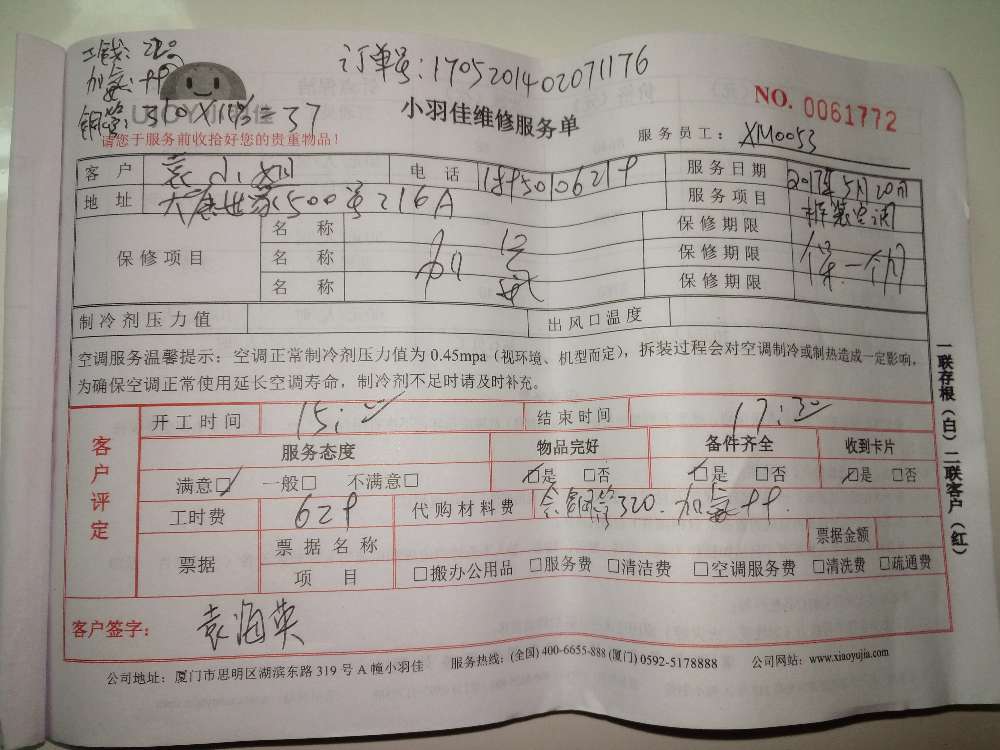 工钱:210
订单号:1705201402071176
加氨:99
铜管:320X1米=37
小羽佳维修服务单
NO. 0061772
请您于服务前收拾好您的贵重物品!
服务员工: XM0053
客 户 袁小姐 电 话 服务日期 2017年5月20日
地 址 大唐世家500号216A 服务项目 拆装空调
保修项目 名 称 保修期限
名 称 加 保修期限 保一个月
名 称 保修期限
制冷剂压力值 出风口温度
空调服务温馨提示:空调正常制冷剂压力值为0.45mpa(视环境、机型而定),拆装过程会对空调制冷或制热造成一定影响,
为确保空调正常使用延长空调寿命,制冷剂不足时请及时补充。
客户评定
开工时间 15:00 结束时间 17:30
服务态度 物品完好 备件齐全 收到卡片
满意☑ 一般□ 不满意□ ☑是 □否 ☑是 □否 ☑是 □否
工时费 629 代购材料费 含铜管320.加氨99.
票据 票据名称 票据金额
项 目 □搬办公用品 □服务费 □清洁费 □空调服务费 □清洗费 □疏通费
客户签字: 袁海英
公司地址:厦门市思明区湖滨东路319号A幢小羽佳 服务热线:(全国)400-6655-888 (厦门)0592-5178888 公司网站:www.xiaoyujia.com
一联存根(白)二联客户(红)